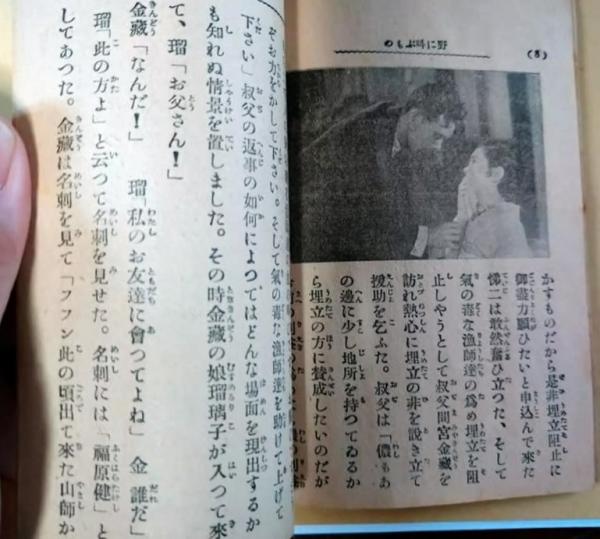 (8)
野に叫ぶもの
かすものだから是非埋立阻止に
御盡力願ひたいと申込んで來た
悌二は敢然奮ひ立つた、そして
氣の毒な漁師達の爲め埋立を阻
止しやうとして叔父間宮金藏を
訪れ熱心に埋立の非を説き立て
援助を乞ふた。叔父は「儂もあ
の邊に少し地所を持つてゐるか
ら埋立の方に賛成したいのだが
ぞお力をかして下さい。そして氣の毒な漁師達を助けて上げて
下さい」叔父の返事の如何によつてはどんな場面を現出するか
も知れぬ情景を置しました。その時金藏の娘瑠璃子が入つて來
て、瑠「お父さん！」
金藏「なんだ！」　瑠「私のお友達に會つてよね」　金「誰だ」
瑠「此の方よ」と云つて名刺を見せた。名刺には「福原健」と
してあつた。金藏は名刺を見て「フフン此の頃出て來た山師か